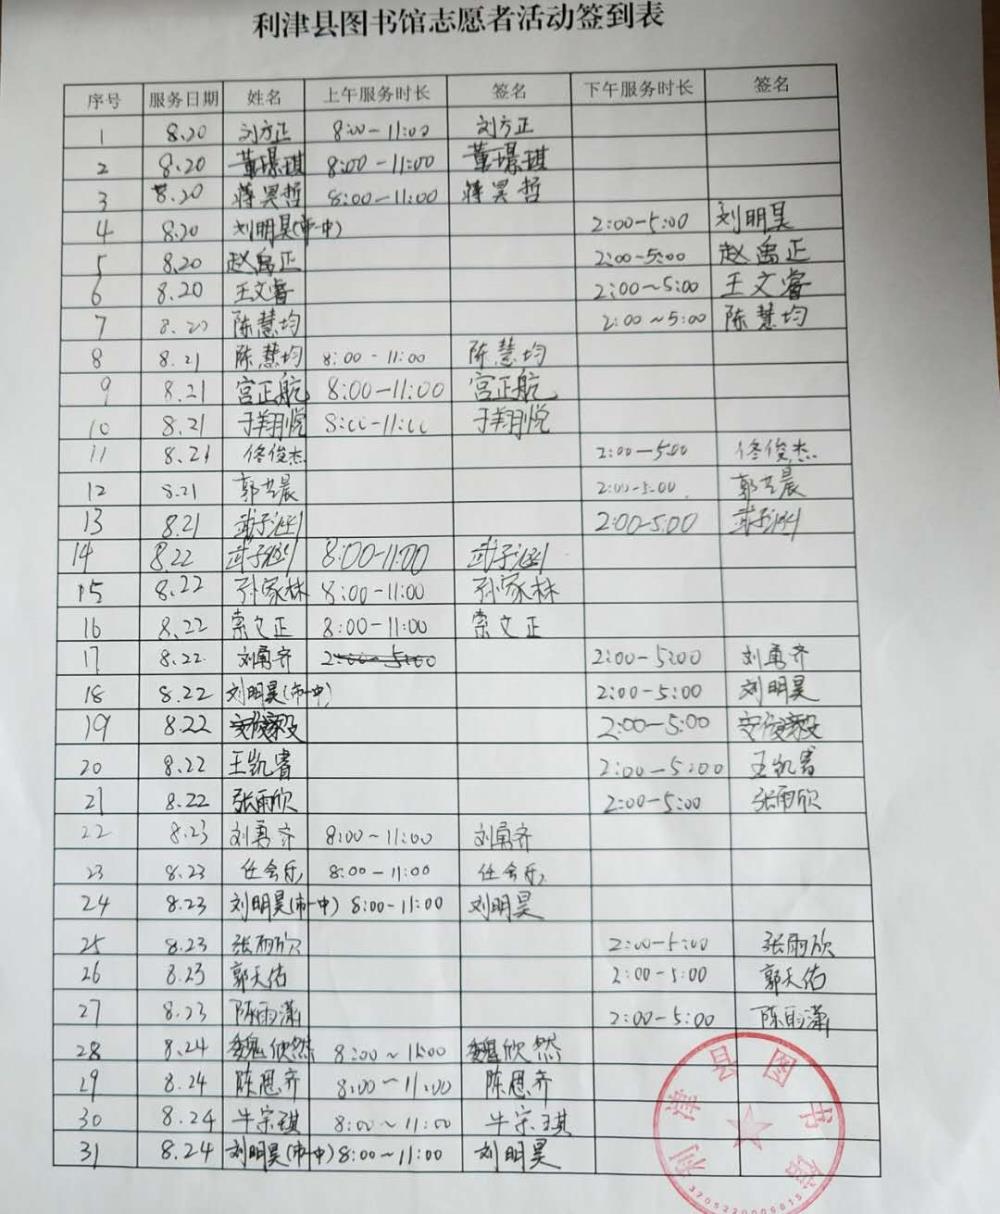 利津县图书馆志愿者活动签到表
序号 服务日期 姓名 上午服务时长 签名 下午服务时长 签名
1 8.20 刘方正 8:00-11:00 刘方正
2 8.20 董璟琪 8:00-11:00 董璟琪
3 8.20 蒋昊哲 8:00-11:00 蒋昊哲
4 8.20 刘明昊(市一中) 2:00-5:00 刘明昊
5 8.20 赵禹正 2:00-5:00 赵禹正
6 8.20 王文睿 2:00~5:00 王文睿
7 8.20 陈慧均 2:00~5:00 陈慧均
8 8.21 陈慧均 8:00-11:00 陈慧均
9 8.21 宫正航 8:00-11:00 宫正航
10 8.21 于翔悦 8:00-11:00 于翔悦
11 8.21 佟俊杰 2:00-5:00 佟俊杰
12 8.21 郭艺晨 2:00-5:00 郭艺晨
13 8.21 武子涵 2:00-5:00 武子涵
14 8.22 武子涵 8:00-11:00 武子涵
15 8.22 孙家林 8:00-11:00 孙家林
16 8.22 索文正 8:00-11:00 索文正
17 8.22 刘勇齐 2:00-5:00 2:00-5:00 刘勇齐
18 8.22 刘明昊(市一中) 2:00-5:00 刘明昊
19 8.22 安俊毅 2:00-5:00 安俊毅
20 8.22 王凯睿 2:00-5:00 王凯睿
21 8.22 张雨欣 2:00-5:00 张雨欣
22 8.23 刘勇齐 8:00~11:00 刘勇齐
23 8.23 任会乐 8:00-11:00 任会乐
24 8.23 刘明昊(市一中) 8:00-11:00 刘明昊
25 8.23 张雨欣 2:00-5:00 张雨欣
26 8.23 郭天佑 2:00-5:00 郭天佑
27 8.23 陈雨潇 2:00-5:00 陈雨潇
28 8.24 魏欣然 8:00~11:00 魏欣然
29 8.24 陈思齐 8:00~11:00 陈思齐
30 8.24 牛宗琪 8:00~11:00 牛宗琪
31 8.24 刘明昊(市一中) 8:00-11:00 刘明昊
利津县图书馆